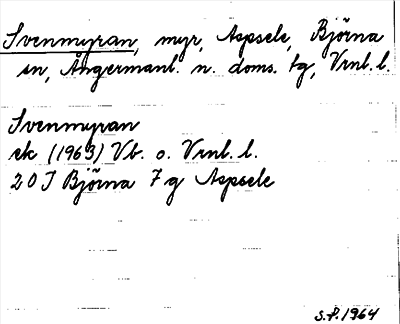 Svenmyran, myr, Aspsele, Björna
sn, Ångermanl. n. doms. tg, Vrnl. l.
Svenmyran
ek (1963) Vb. o. Vrnl. l.
20 J Björna 7 g Aspsele
S.P. 1964